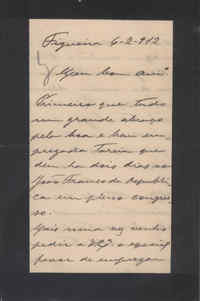 Figueira 6-2-912
Meu bom am.º
Primeiro que tudo
um grande abraço
pela boa e bem em-
pregada tareia que
deu ha dois dias ao
João Franco da Republi-
ca em pleno congres-
so.
Mais uma vez venho
pedir a V. Ex.ª o especial
favor de empregar